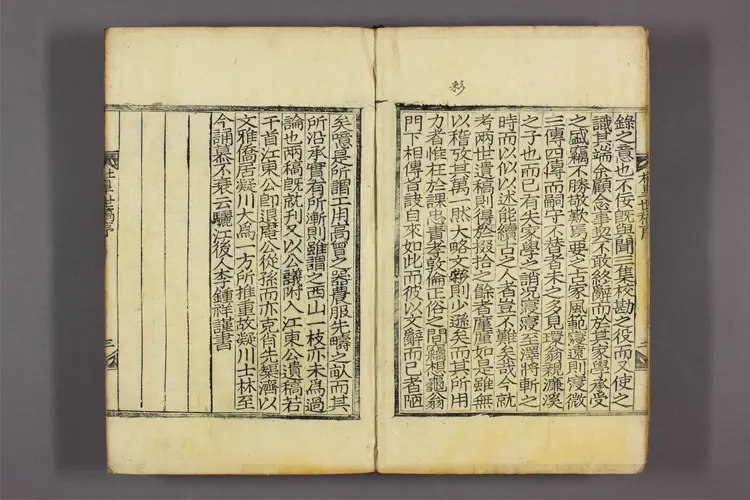 彩
錄之意也不佞旣與聞三集校勘之役而又使之
識其端余顧念事契不敢終辭而於其家學承受
之盛竊不勝敬歎焉要之古家風範寖遠則寖微
三傳四傳而嗣守不替者未之多見環翁親濂溪
之子也而已有失家學之語况寖寖至澤將斬之
時而以似以述能續古之人者豈不難矣哉今就
考兩世遺稿則得於掇拾之餘者廑廑如是雖無
以稽攷其萬一然大略文勢則少遜矣而其所用
力者惟在於課忠責孝敦倫正俗之間竊想龜翁
門下相傳旨訣自來如此而彼以文辭而已者陋
矣噫是所謂工用高曾之器農服先疇之畝而其
所沿承實有所漸則雖謂之西山一枝亦未爲過
論也兩稿旣就刊又以公議附入江東公遺稿若
干首江東公卽退庵公從孫而亦克肖先藥濟以
文雅僑居凝川大爲一方所推重故凝川士林至
今誦慕不衰云驪江後人李鍾祥謹書
世稿序
二
世稿序
三